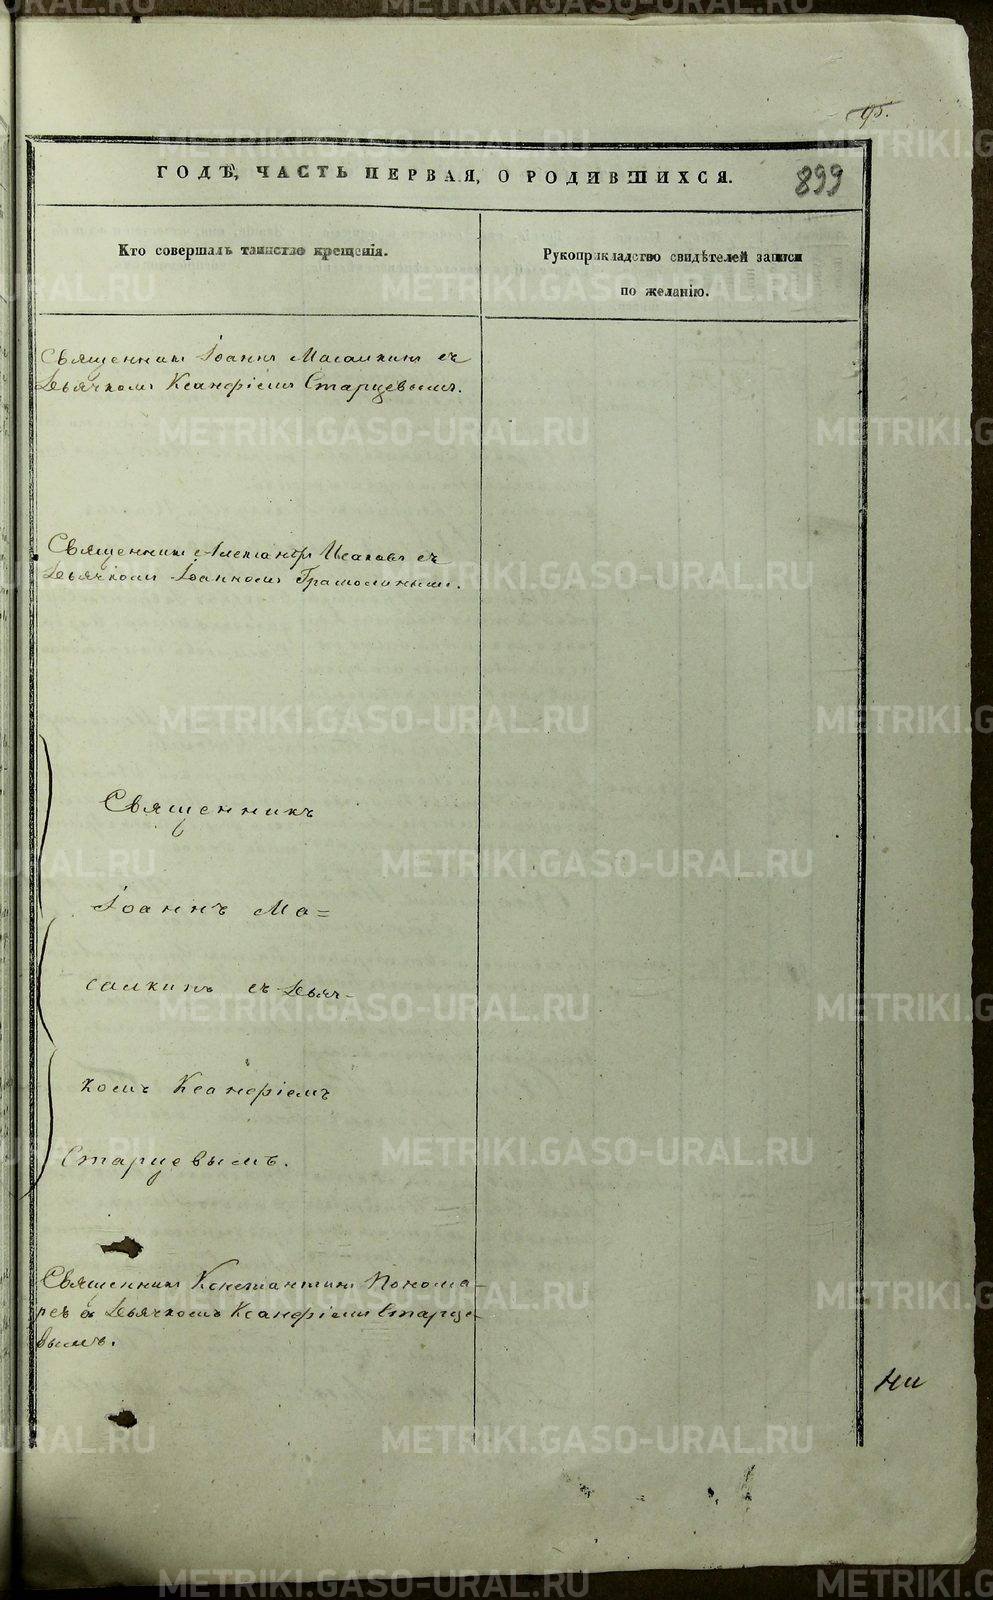 95.
899
ГОДѢ, ЧАСТЬ ПЕРВАЯ, О РОДИВШИХСЯ.
Кто совершалъ таинство крещенія.
Рукоприкладство свидѣтелей записи
по желанію.
Священник Іоаннъ Масалкинъ съ
Дьячкомъ Ксанфіемъ Старцевымъ.
Священник Александръ Исаковъ съ
Дьячкомъ Іоанномъ Грамолинымъ.
Священникъ
Іоаннъ Ма=
салкинъ съ Дьяч-
комъ Ксанфіемъ
Старцевымъ.
Священник Константинъ Понома-
ревъ Дьячкомъ Ксанфіемъ Старце-
вымъ.
METRIKI.GASO-URAL.RU